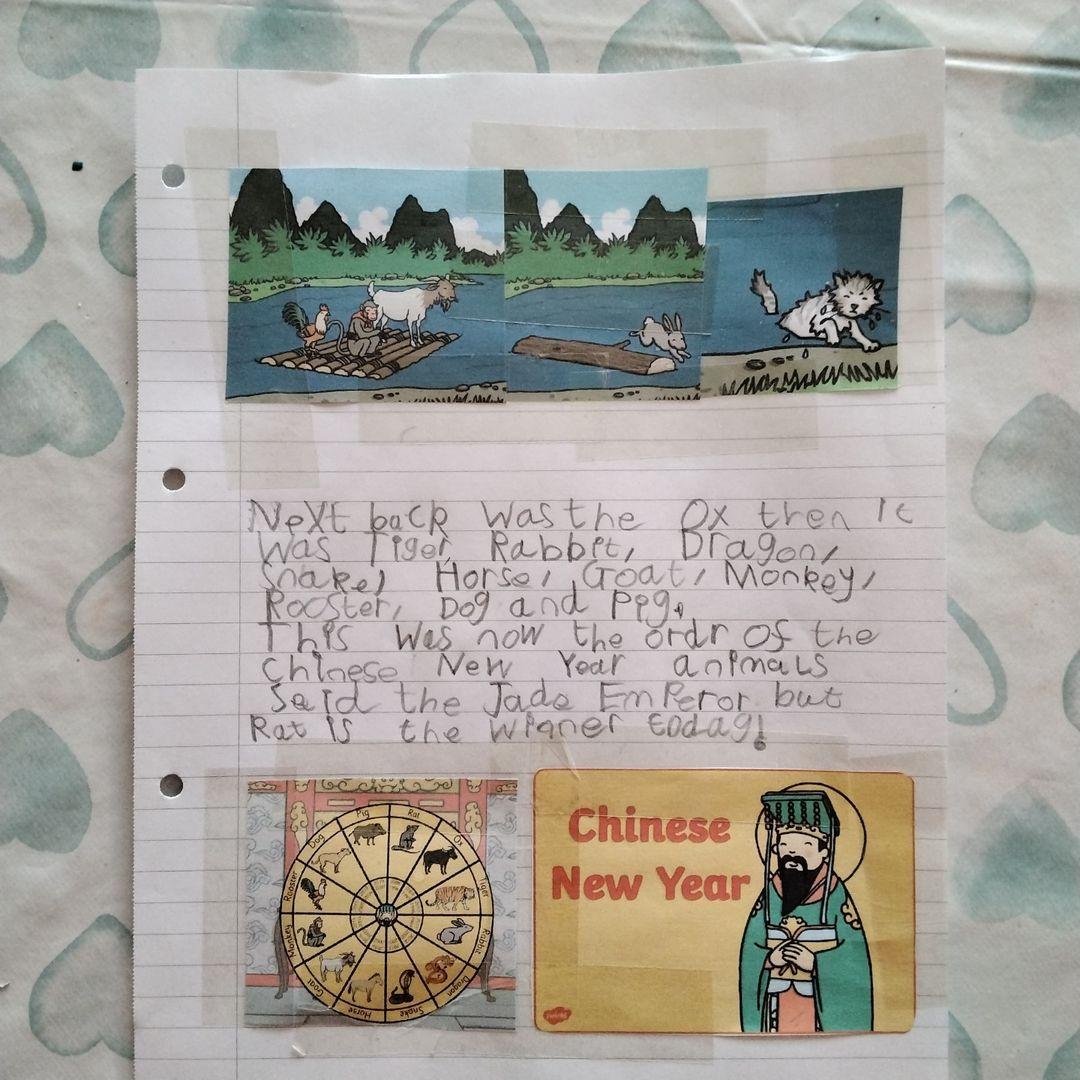 Next back was the Ox then it
was Tiger, Rabbit, Dragon,
Snake, Horse, Goat, Monkey,
Rooster, Dog and Pig.
This was now the ordr of the
Chinese New Year animals
Said the Jade Emperor but
Rat is the winner today!
Pig
Rat
Ox
Tiger
Rabbit
Dragon
Snake
Horse
Goat
Monkey
Rooster
Dog
Chinese
New Year